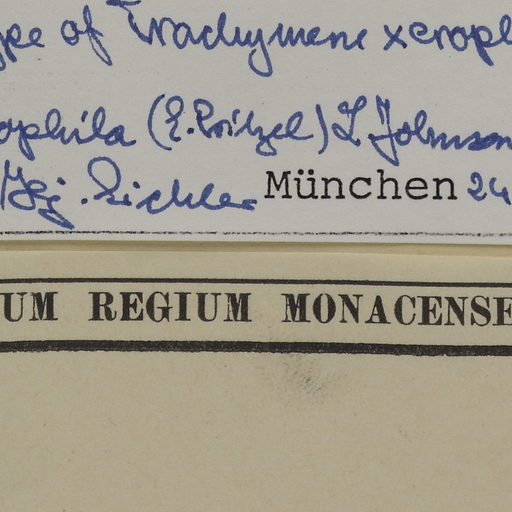 ype of Trachymene xeroph
ophila (E. Pritzel) L. Johnson
Hj. Eichler München 24
UM REGIUM MONACENSE